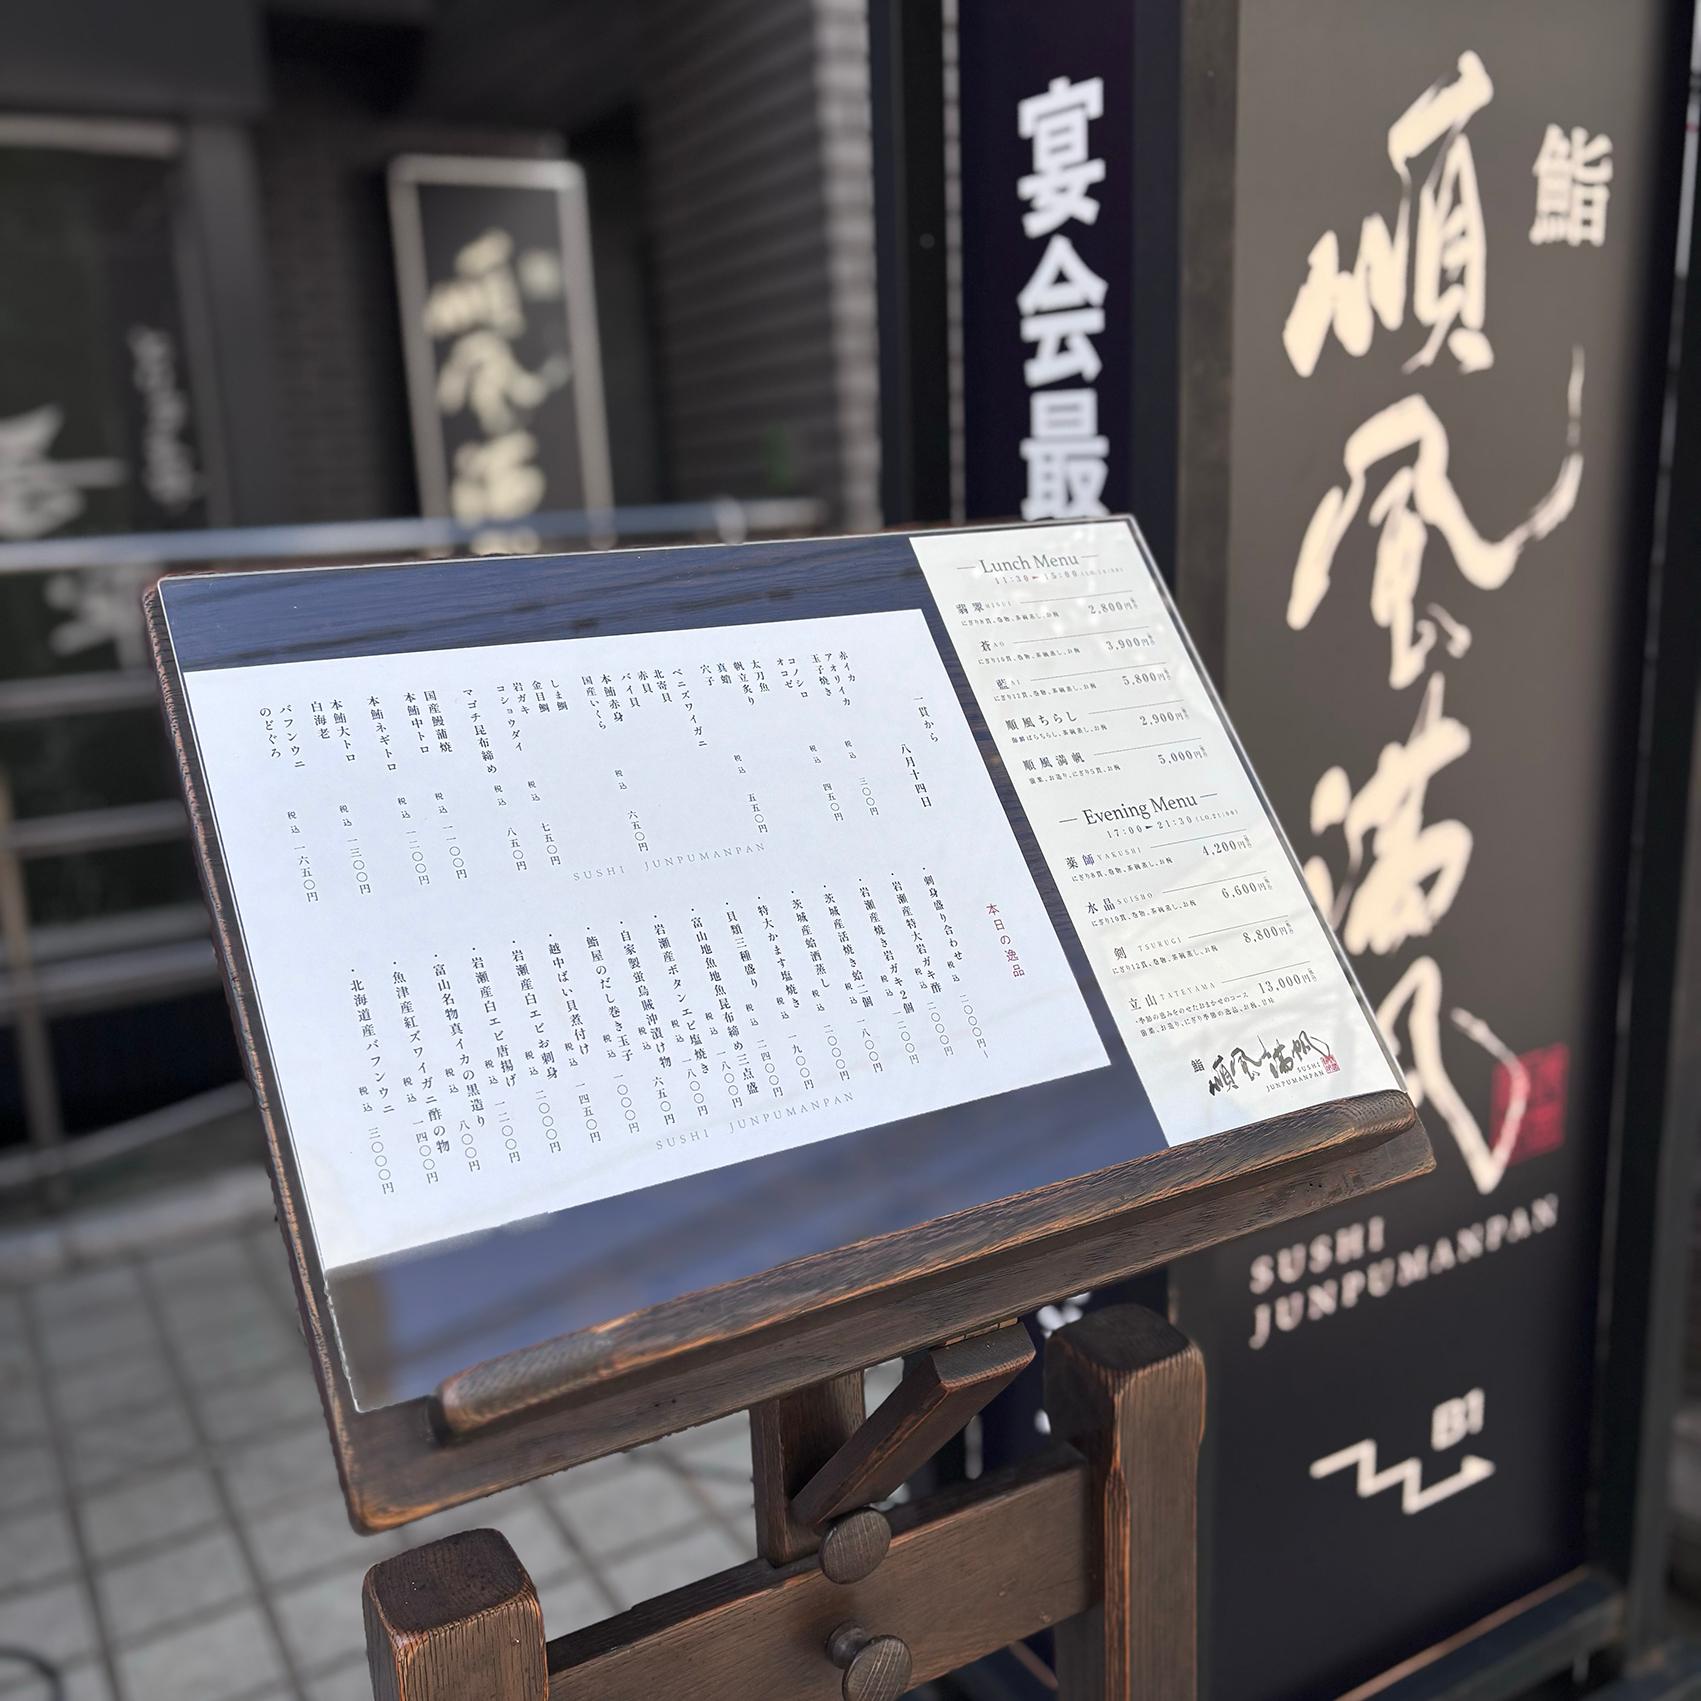 鮨
順風満帆
SUSHI
JUNPUMANPAN
B1
宴会最
一貫から 八月十四日
赤イカ 税込 三〇〇円
アオリイカ
玉子焼き 税込 四五〇円
コノシロ
オコゼ
太刀魚 税込 五五〇円
帆立炙り
真蛸
穴子
ベニズワイガニ
北寄貝
赤貝
バイ貝 税込 六五〇円
本鮪赤身
国産いくら
しま鯛 税込 七五〇円
金目鯛
岩ガキ 税込 八五〇円
コショウダイ
マゴチ昆布締め
国産鰻蒲焼 税込 一一〇〇円
本鮪中トロ 税込 一二〇〇円
本鮪ネギトロ
本鮪大トロ 税込 一三〇〇円
白海老
バフンウニ 税込 一六五〇円
のどぐろ
SUSHI JUNPUMANPAN
本日の逸品
・刺身盛り合わせ 税込 二〇〇〇円〜
・岩瀬産特大岩ガキ酢 税込 二〇〇〇円
・岩瀬産焼き岩ガキ2個 税込 一二〇〇円
・茨城産活焼き蛤二個 税込 一八〇〇円
・茨城産蛤酒蒸し 税込 二〇〇〇円
・特大かます塩焼き 税込 一九〇〇円
・貝類三種盛り 税込 二四〇〇円
・富山地魚地魚昆布締め三点盛 税込 一八〇〇円
・岩瀬産ボタンエビ塩焼き 税込 一八〇〇円
・自家製蛍烏賊沖漬け物 税込 六五〇円
・鮨屋のだし巻き玉子 税込 一〇〇〇円
・越中ばい貝煮付け 税込 一四五〇円
・岩瀬産白エビお刺身 税込 二〇〇〇円
・岩瀬産白エビ唐揚げ 税込 一二〇〇円
・富山名物真イカの黒造り 税込 八〇〇円
・魚津産紅ズワイガニ酢の物 税込 一四〇〇円
・北海道産バフンウニ 税込 三〇〇〇円
SUSHI JUNPUMANPAN
Lunch Menu
11:30 ― 15:00
翡翠 HISUI 2,800円
にぎり8貫、巻物、茶碗蒸し、お椀
蒼 AO 3,900円
にぎり10貫、巻物、茶碗蒸し、お椀
藍 AI 5,800円
にぎり12貫、巻物、茶碗蒸し、お椀
順風ちらし 2,900円
海鮮ばらちらし、茶碗蒸し、お椀
順風満帆 5,000円
前菜、お造り、にぎり5貫、お椀
Evening Menu
17:00 ― 21:30 (LO.21:00)
薬師 YAKUSHI 4,200円
にぎり8貫、巻物、茶碗蒸し、お椀
水晶 SUISHO 6,600円
にぎり10貫、巻物、茶碗蒸し、お椀
剣 TSURUGI 8,800円
にぎり12貫、巻物、茶碗蒸し、お椀
立山 TATEYAMA 13,000円
・季節の恵みをのせたおまかせのコース
前菜、お造り、にぎり季節の逸品、お椀、甘味
鮨 順風満帆
SUSHI
JUNPUMANPAN